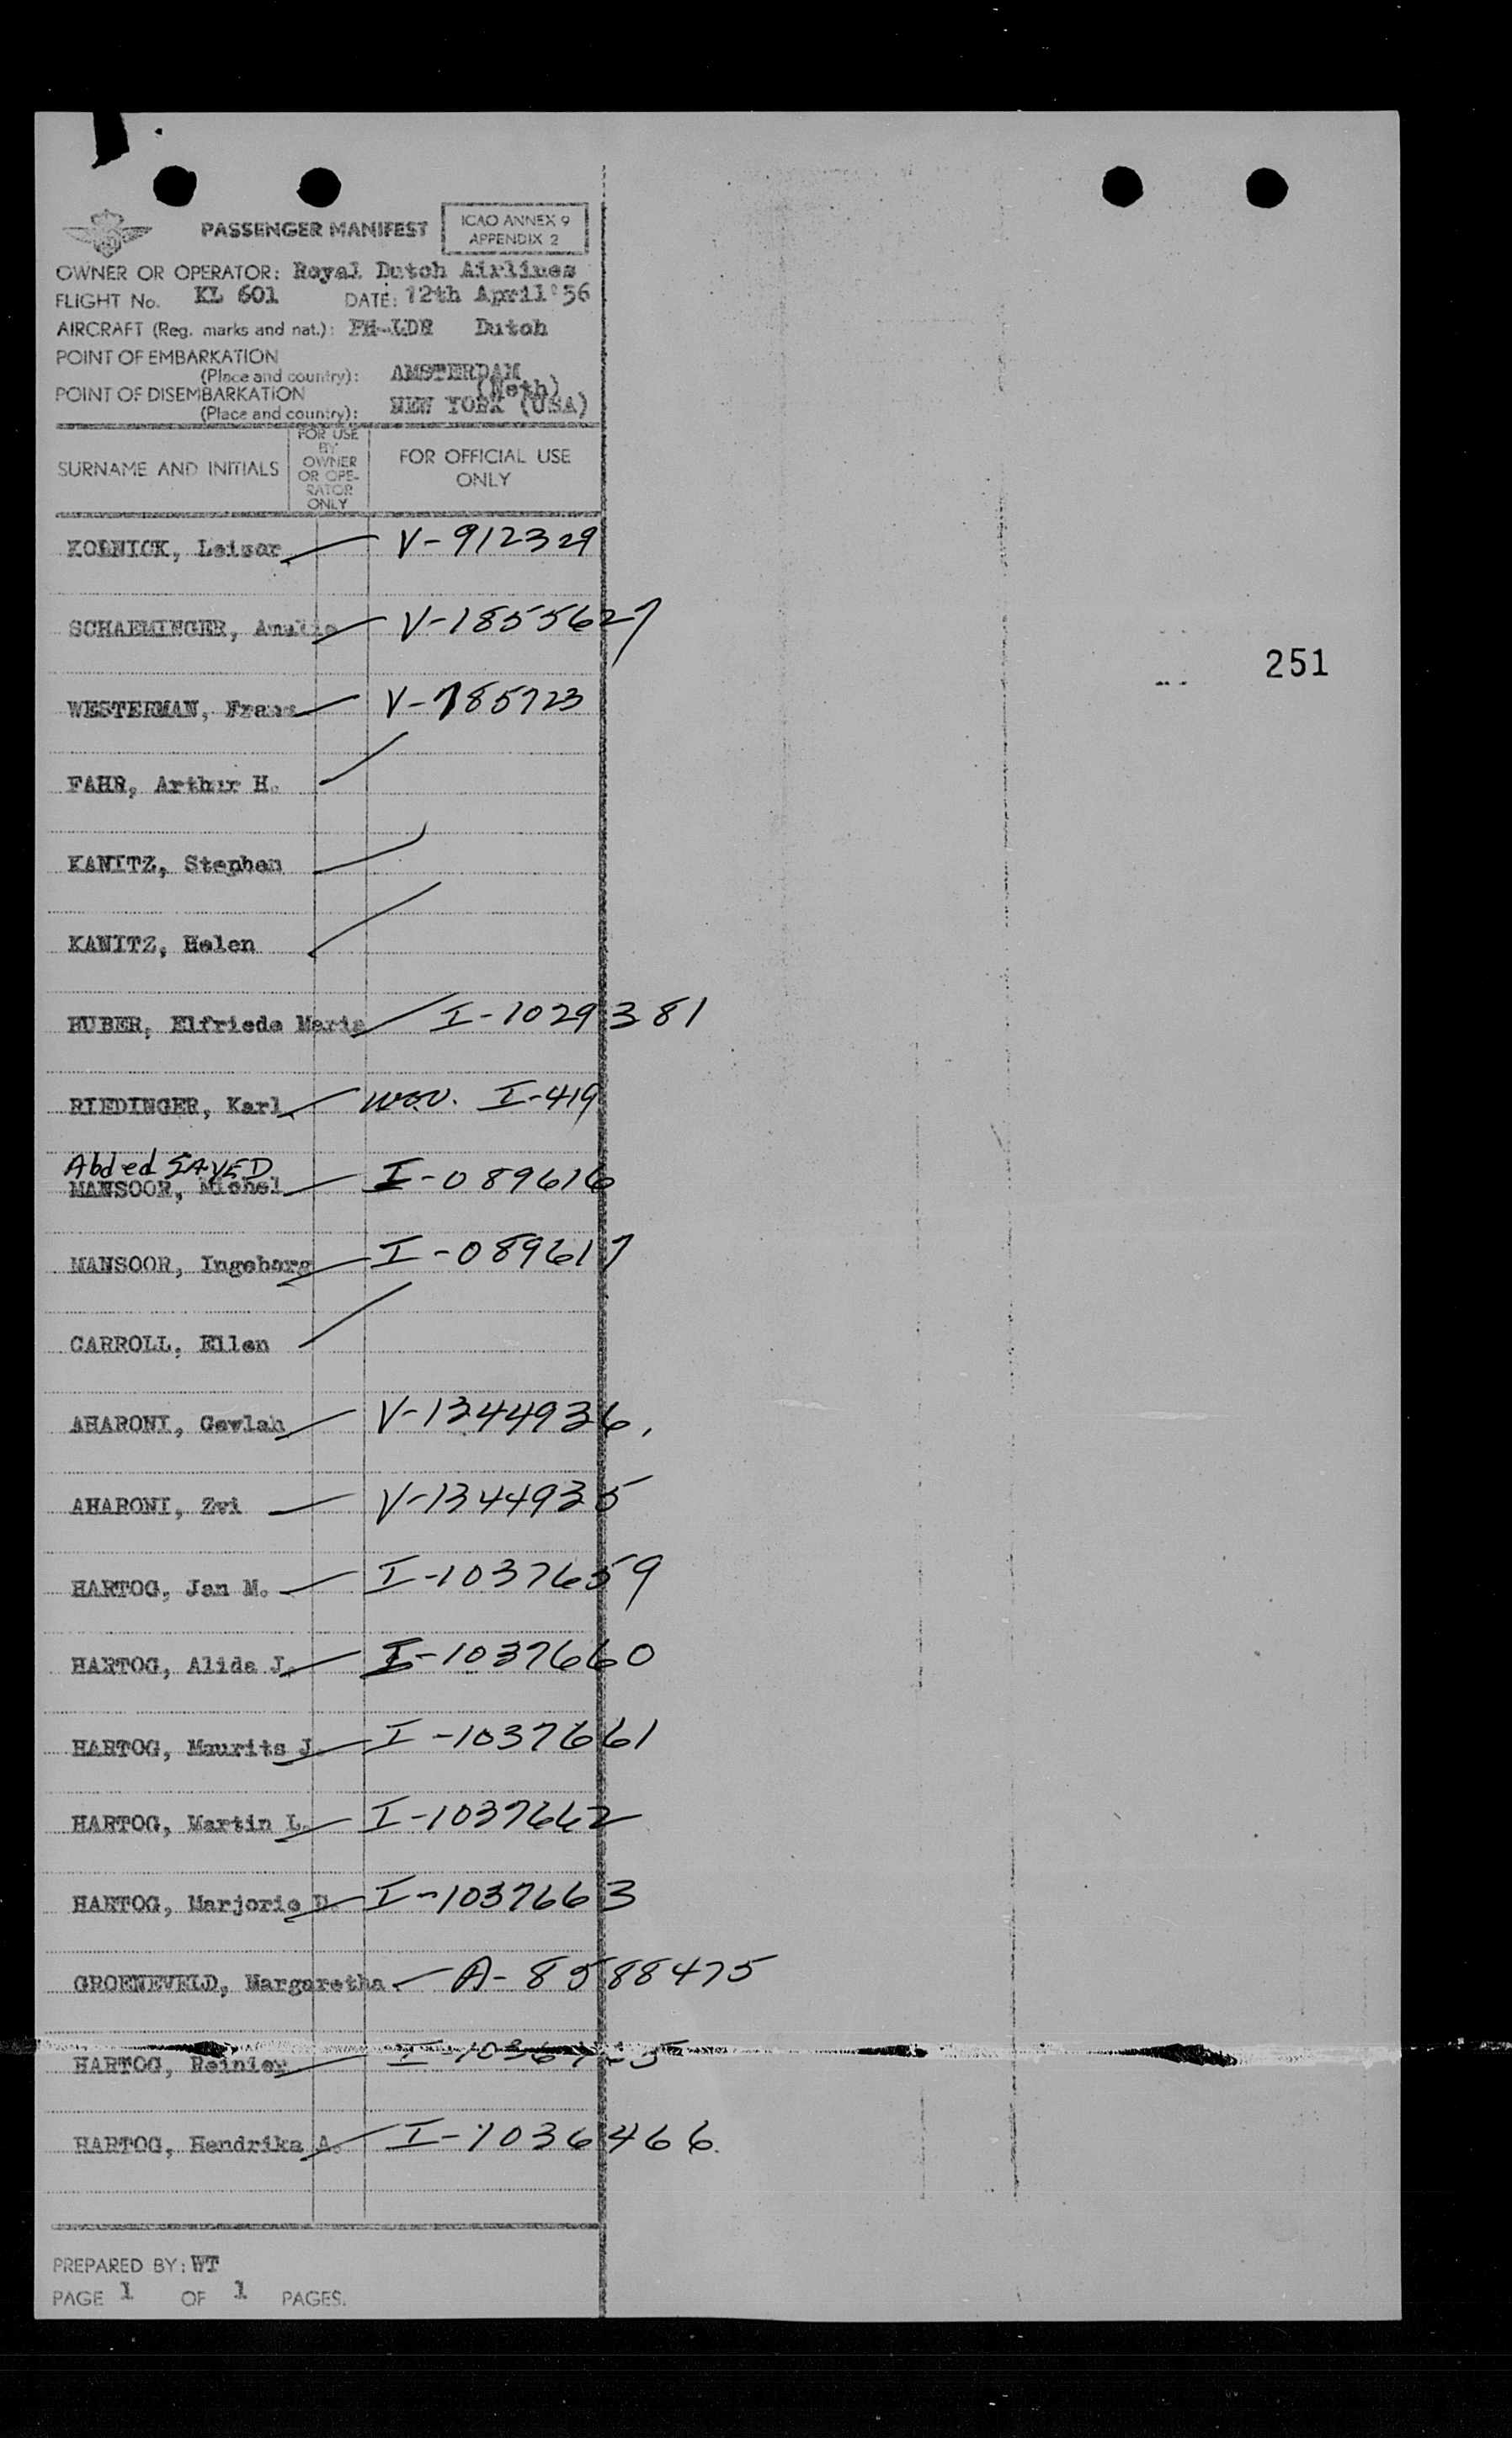 PASSENGER MANIFEST
ICAO ANNEX 9
APPENDIX 2
OWNER OR OPERATOR: Royal Dutch Airlines
FLIGHT No. KL 601 DATE: 12th April'56
AIRCRAFT (Reg. marks and nat.): PH-LDR Dutch
POINT OF EMBARKATION
(Place and country): AMSTERDAM
(Neth)
POINT OF DISEMBARKATION
(Place and country): NEW YORK (USA)
SURNAME AND INITIALS
FOR USE
BY
OWNER
OR OPE-
RATOR
ONLY
FOR OFFICIAL USE
ONLY
KOLNICK, Leisor V-912329
SCHAEMINGER, V-1855627
251
WESTERMAN, Frans V-785723
FAHR, Arthur H.
KANITZ, Stephen
KANITZ, Helen
HUBER, Elfriede Maria I-1029381
RIEDINGER, Karl I-419
Abded SAYED
MANSOOR, Michel I-089616
MANSOOR, Ingeborg I-089617
CARROLL, Ellen
AHARONI, Gevlah V-1344936
AHARONI, Zvi V-1344935
HARTOG, Jan M. I-1037659
HARTOG, Alida J. I-1037660
HARTOG, Maurits J. I-1037661
HARTOG, Martin L. I-1037662
HARTOG, Marjorie D. I-1037663
GROENEVELD, Margaretha A-8588475
HARTOG, Reinier
HARTOG, Hendrika A. I-1036466
PREPARED BY: WT
PAGE 1 OF 1 PAGES.